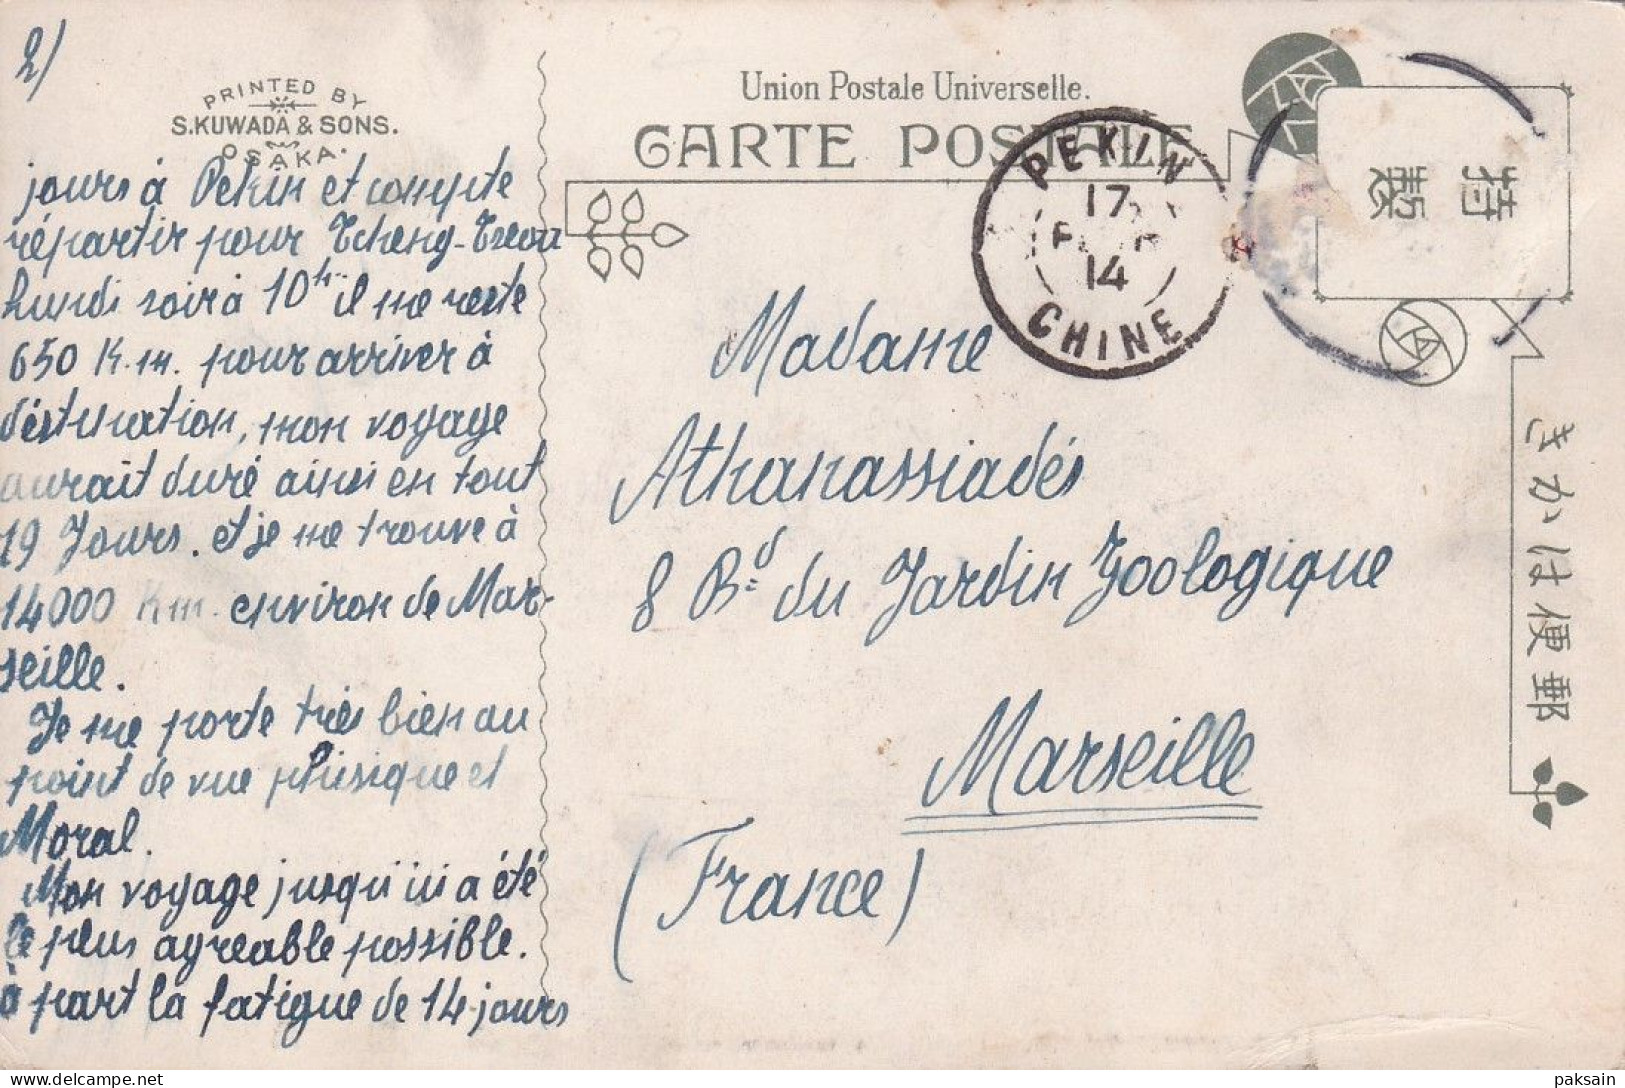 2/
PRINTED BY
S.KUWADA & SONS.
OSAKA.
jours à Pekin et compte
répartir pour Tcheng-Tzeou
Lundi soir à 10h il me reste
650 K.m. pour arriver à
déstination, mon voyage
aurait duré ainsi en tout
19 Jours. et je me trouve à
14000 Km. environ de Mar-
seille.
Je me porte très bien au
point de vue phisique et
Moral.
Mon voyage jusqu'ici a été
le plus agreable possible.
à part la fatigue de 14 jours
Union Postale Universelle.
CARTE POSTALE
PEKIN
17
14
CHINE
特
きかは便郵
Madame
Athanassiadés
8 Bd du Jardin Zoologique
Marseille
(France)
delcampe.net
paksain